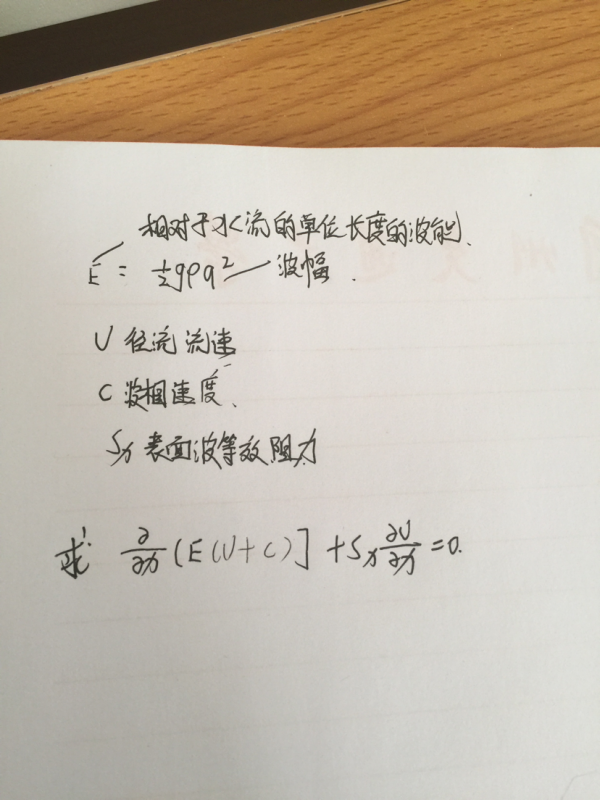 相对于水流的单位长度的波能、
E = ½gρa² 波幅.
U 径流流速
C 波相速度、
Sx 表面波等效阻力
求: ∂/∂x (E(U+C)] + Sx ∂U/∂x = 0.